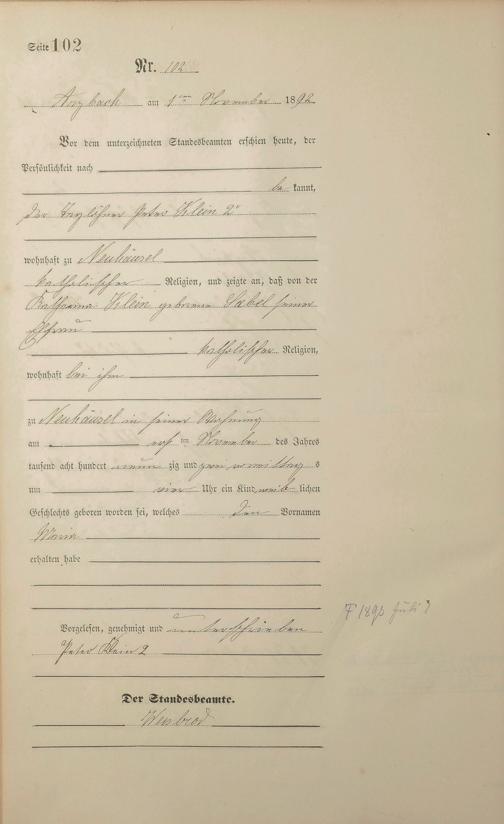 Seite 102
Nr. 102
Arzbach am 1ten November 1892
Vor dem unterzeichneten Standesbeamten erschien heute, der
Persönlichkeit nach
be kannt,
der Taglöhner Peter Klein 2r
wohnhaft zu Neuhäusel
katholischer Religion, und zeigte an, daß von der
Katharina Klein geborene Sabel seiner
Ehefrau
katholischer Religion,
wohnhaft bei ihm
zu Neuhäusel in seiner Wohnung
am ten November des Jahres
tausend acht hundert neun zig und zwei vormittags
um vier Uhr ein Kind weib lichen
Geschlechts geboren worden sei, welches den Vornamen
Maria
erhalten habe
Vorgelesen, genehmigt und unterschrieben
Peter Klein 2
Der Standesbeamte.
Juli